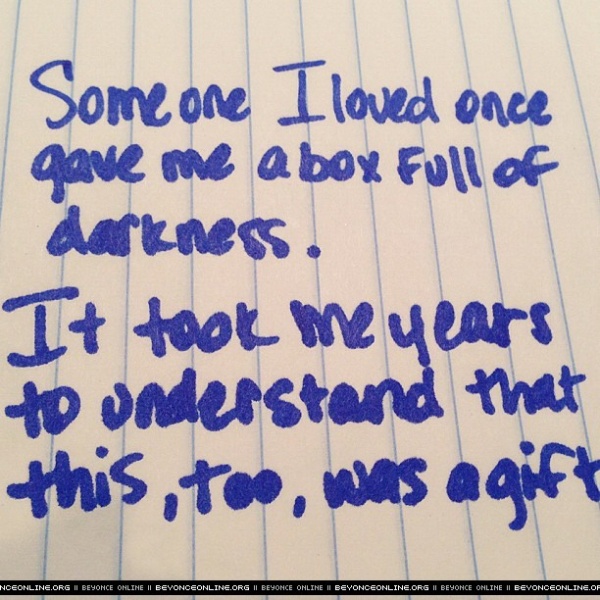 Someone I loved once
gave me a box full of
darkness.
It took me years
to understand that
this, too, was a gift
NCEONLINE.ORG || BEYONCE ONLINE || BEYONCEONLINE.ORG || BEYONCE ONLINE || BEYONCEONLINE.ORG || BEYONCE ONLINE || BEYONCEONLINE.ORG